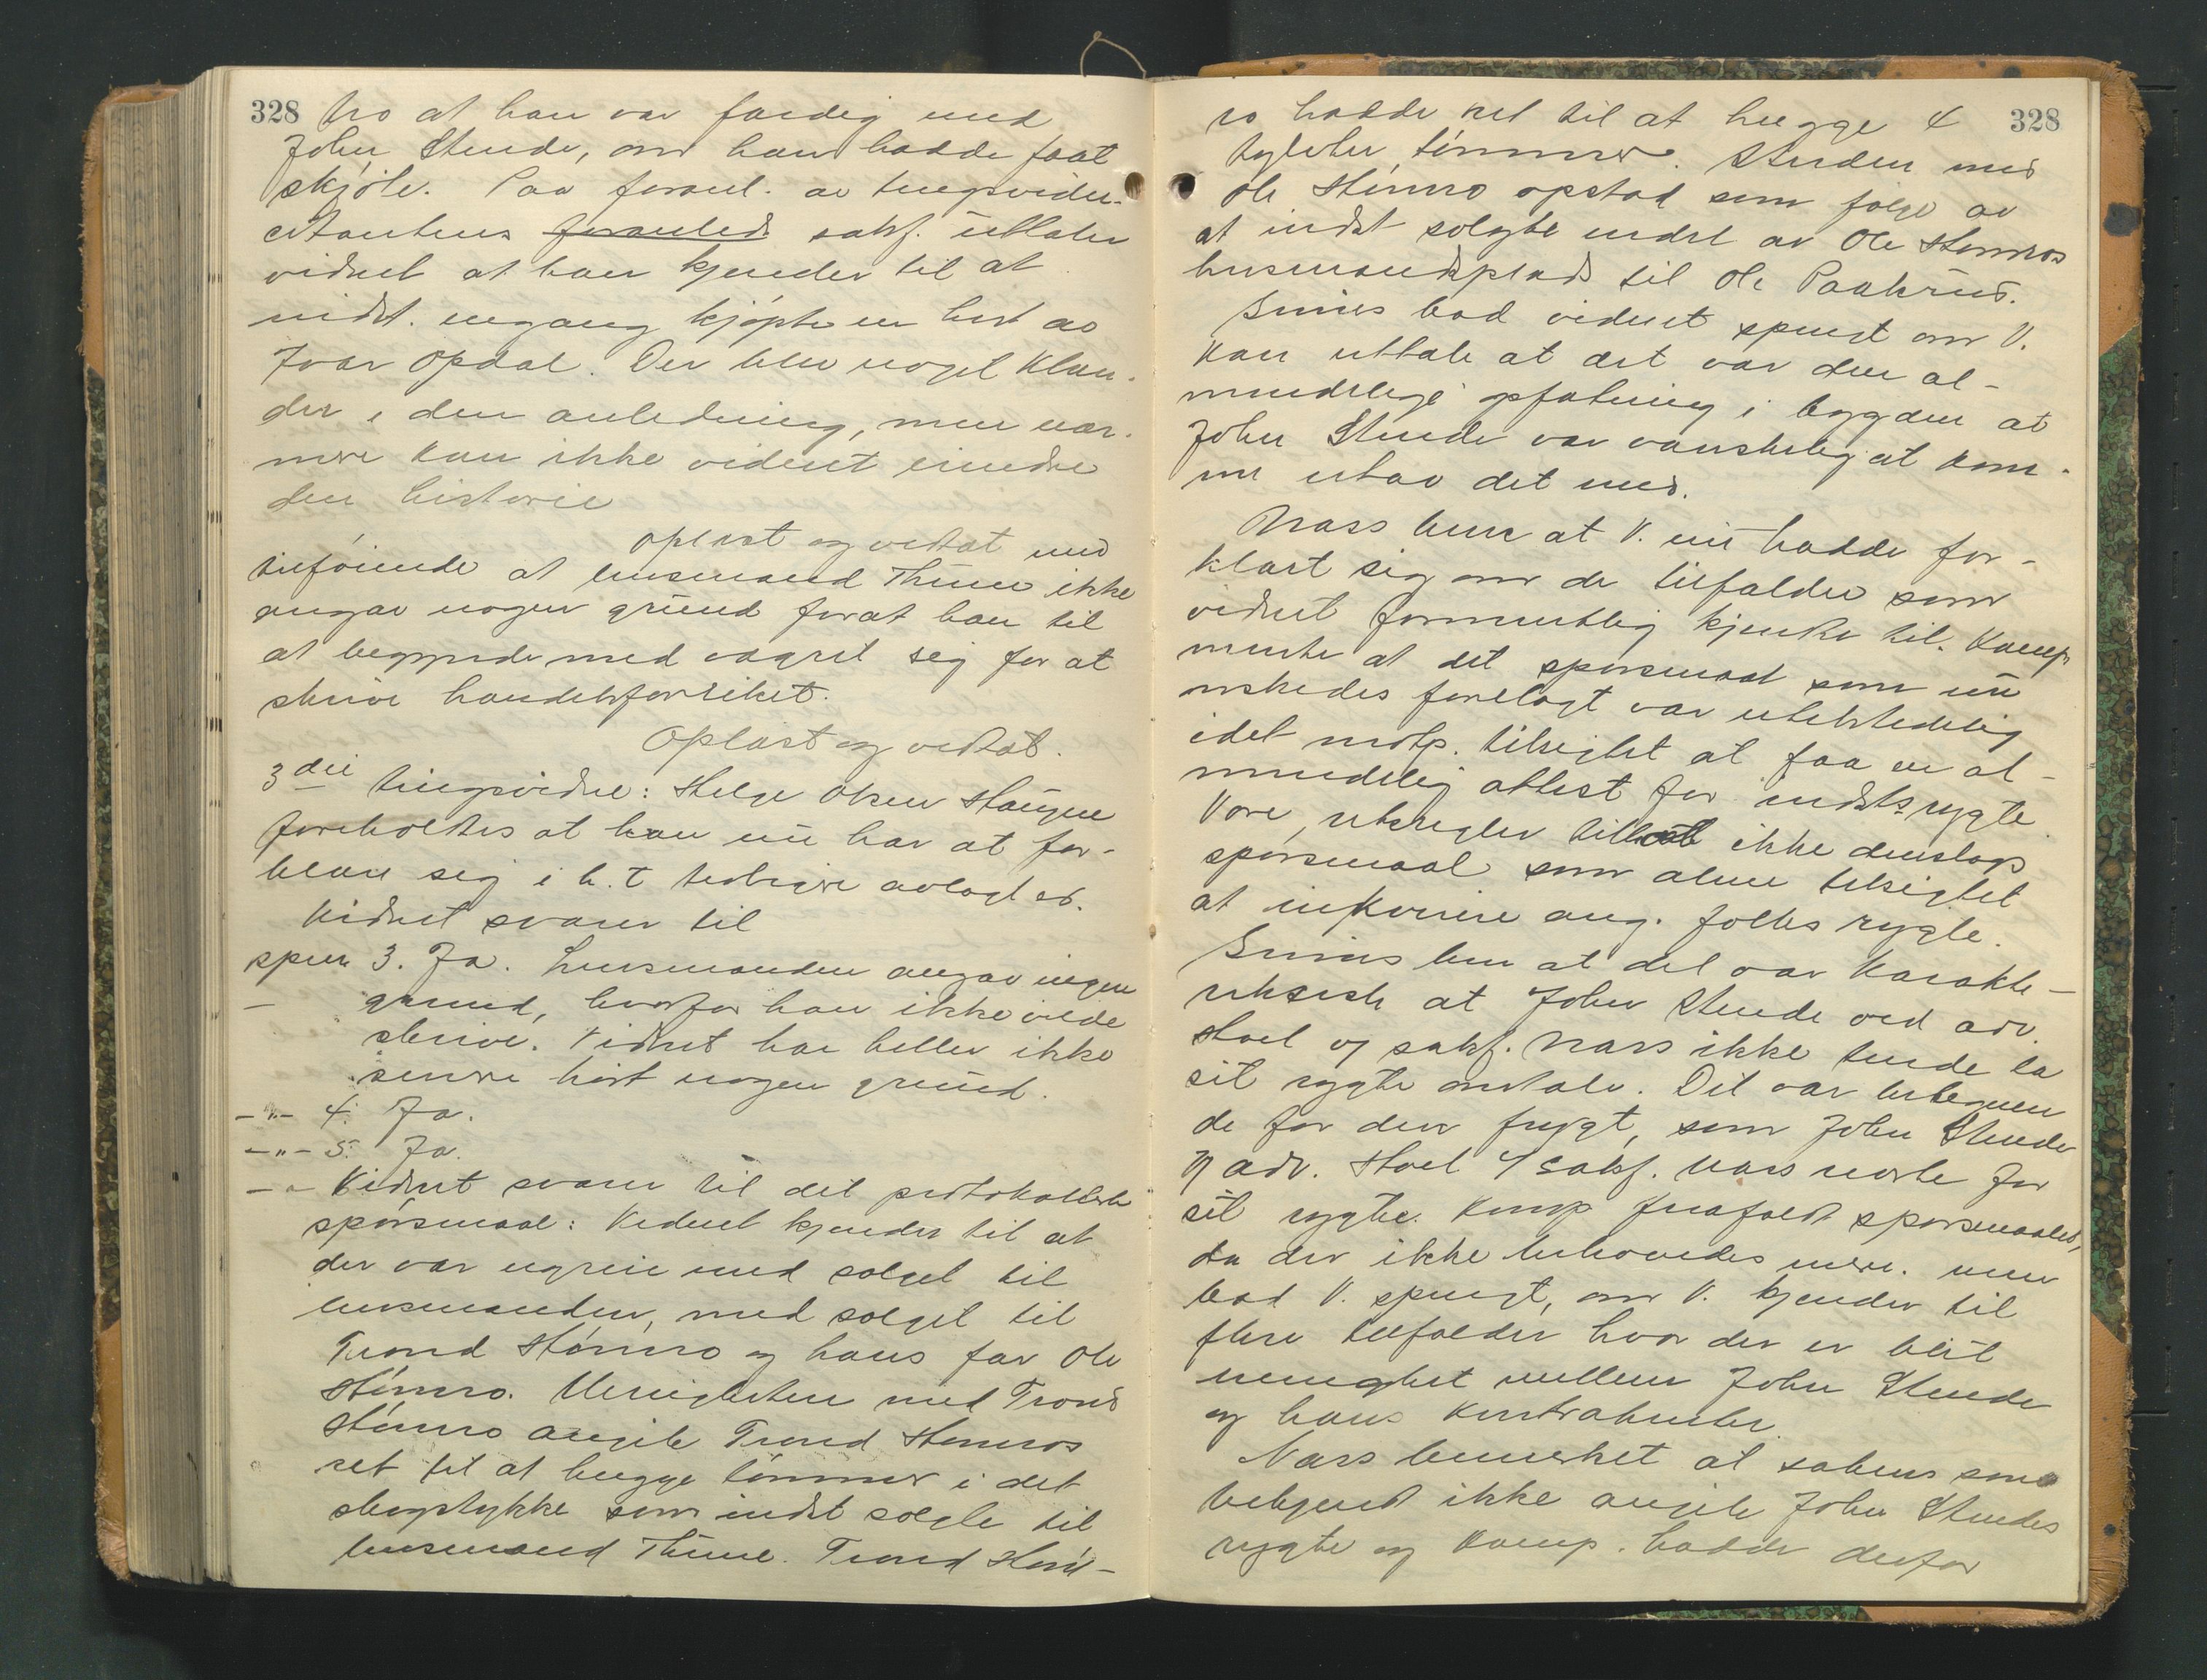 328 tro at han var færdig med
John Stende, om han hadde faat
skjöte. Paa foranl. av tingsvidne-
citantens foranledn sakf. uttaler
vidnet at han kjender til at
indst. engang kjöpte en hest av
Ivar Opdal. Der blev noget klam-
der i den anledning, men nær-
mere kan ikke vidnet erindre
den historie
oplæst og vedtat med
tilföiende at lensmand Thune ikke
angav nogen grund forat han til
at begynde med vægret sig for at
skrive handelsforliket.
Oplæst og vedtat.
3die tingsvidne: Helge Olsen Haugen
foreholdtes at han nu har at for-
klare sig i h. t tidligere avlagt ed.
Vidnet svarer til
spm 3. Ja. Lensmanden angav ingen
- grund, hvorfor han ikke vilde
skrive. Vidnet har heller ikke
senere hört nogen grund.
-"- 4. Ja.
-"- 5. Ja.
-"- Vidnet svarer til det protokollerte
spörsmaal: Vidnet kjender til at
der var ugreie med salget til
lensmanden, med salget til
Trond Hömro og hans far Ole
Hömro. Uenigheten med Trond
Hömro angik Trond Hömros
ret til at hugge tömmer i det
skogstykke som indst solgte til
lensmand Thune. Trond Höm-
ro hadde ret til at hugge 4 328
tylvter tömmer. Striden med
Ole Hömro opstod som fölge av
at indst solgte endel av Ole Hömros
husmandsplads til Ole Paakrud.
Smies bad vidnet spurgt om V.
kan uttale at det var den al-
mindelige opfatning i bygden at
John Stende var vanskelig at kom-
me utav det med.
Næss bem at V. nu hadde for-
klart sig om de tilfælder som
vidnet formentlig kjendte til. Kamp
mente at det spörsmaal som nu
önskedes forelagt var utilstedelig
idet motp. tilsigtet at faa en al-
mindelig attest for indsts rygte.
Vore utsregler tillot ikke denslags
spörsmaal som alene tilsigtet
at inkvirere ang. folks rygte.
Smies bem at det var karakte-
ristisk at John Stende ved adv.
Hoel og sakf. Næss ikke turde la
sit rygte omtale. Det var betegnen
de for den frygt, som John Stende
og adv. Hoel & sakf. Næss nærte for
sit rygte. Kamp frafaldt spörsmaalet,
da der ikke behövedes mere. men
bad V. spurgt, om V. kjender til
flere tilfælder hvor der er blit
uenighet mellem John Stende
og hans kontrahenter.
Næss bemerket at saken som
bekjendt ikke angik John Stendes
rygte og Kamp. hadde derfor